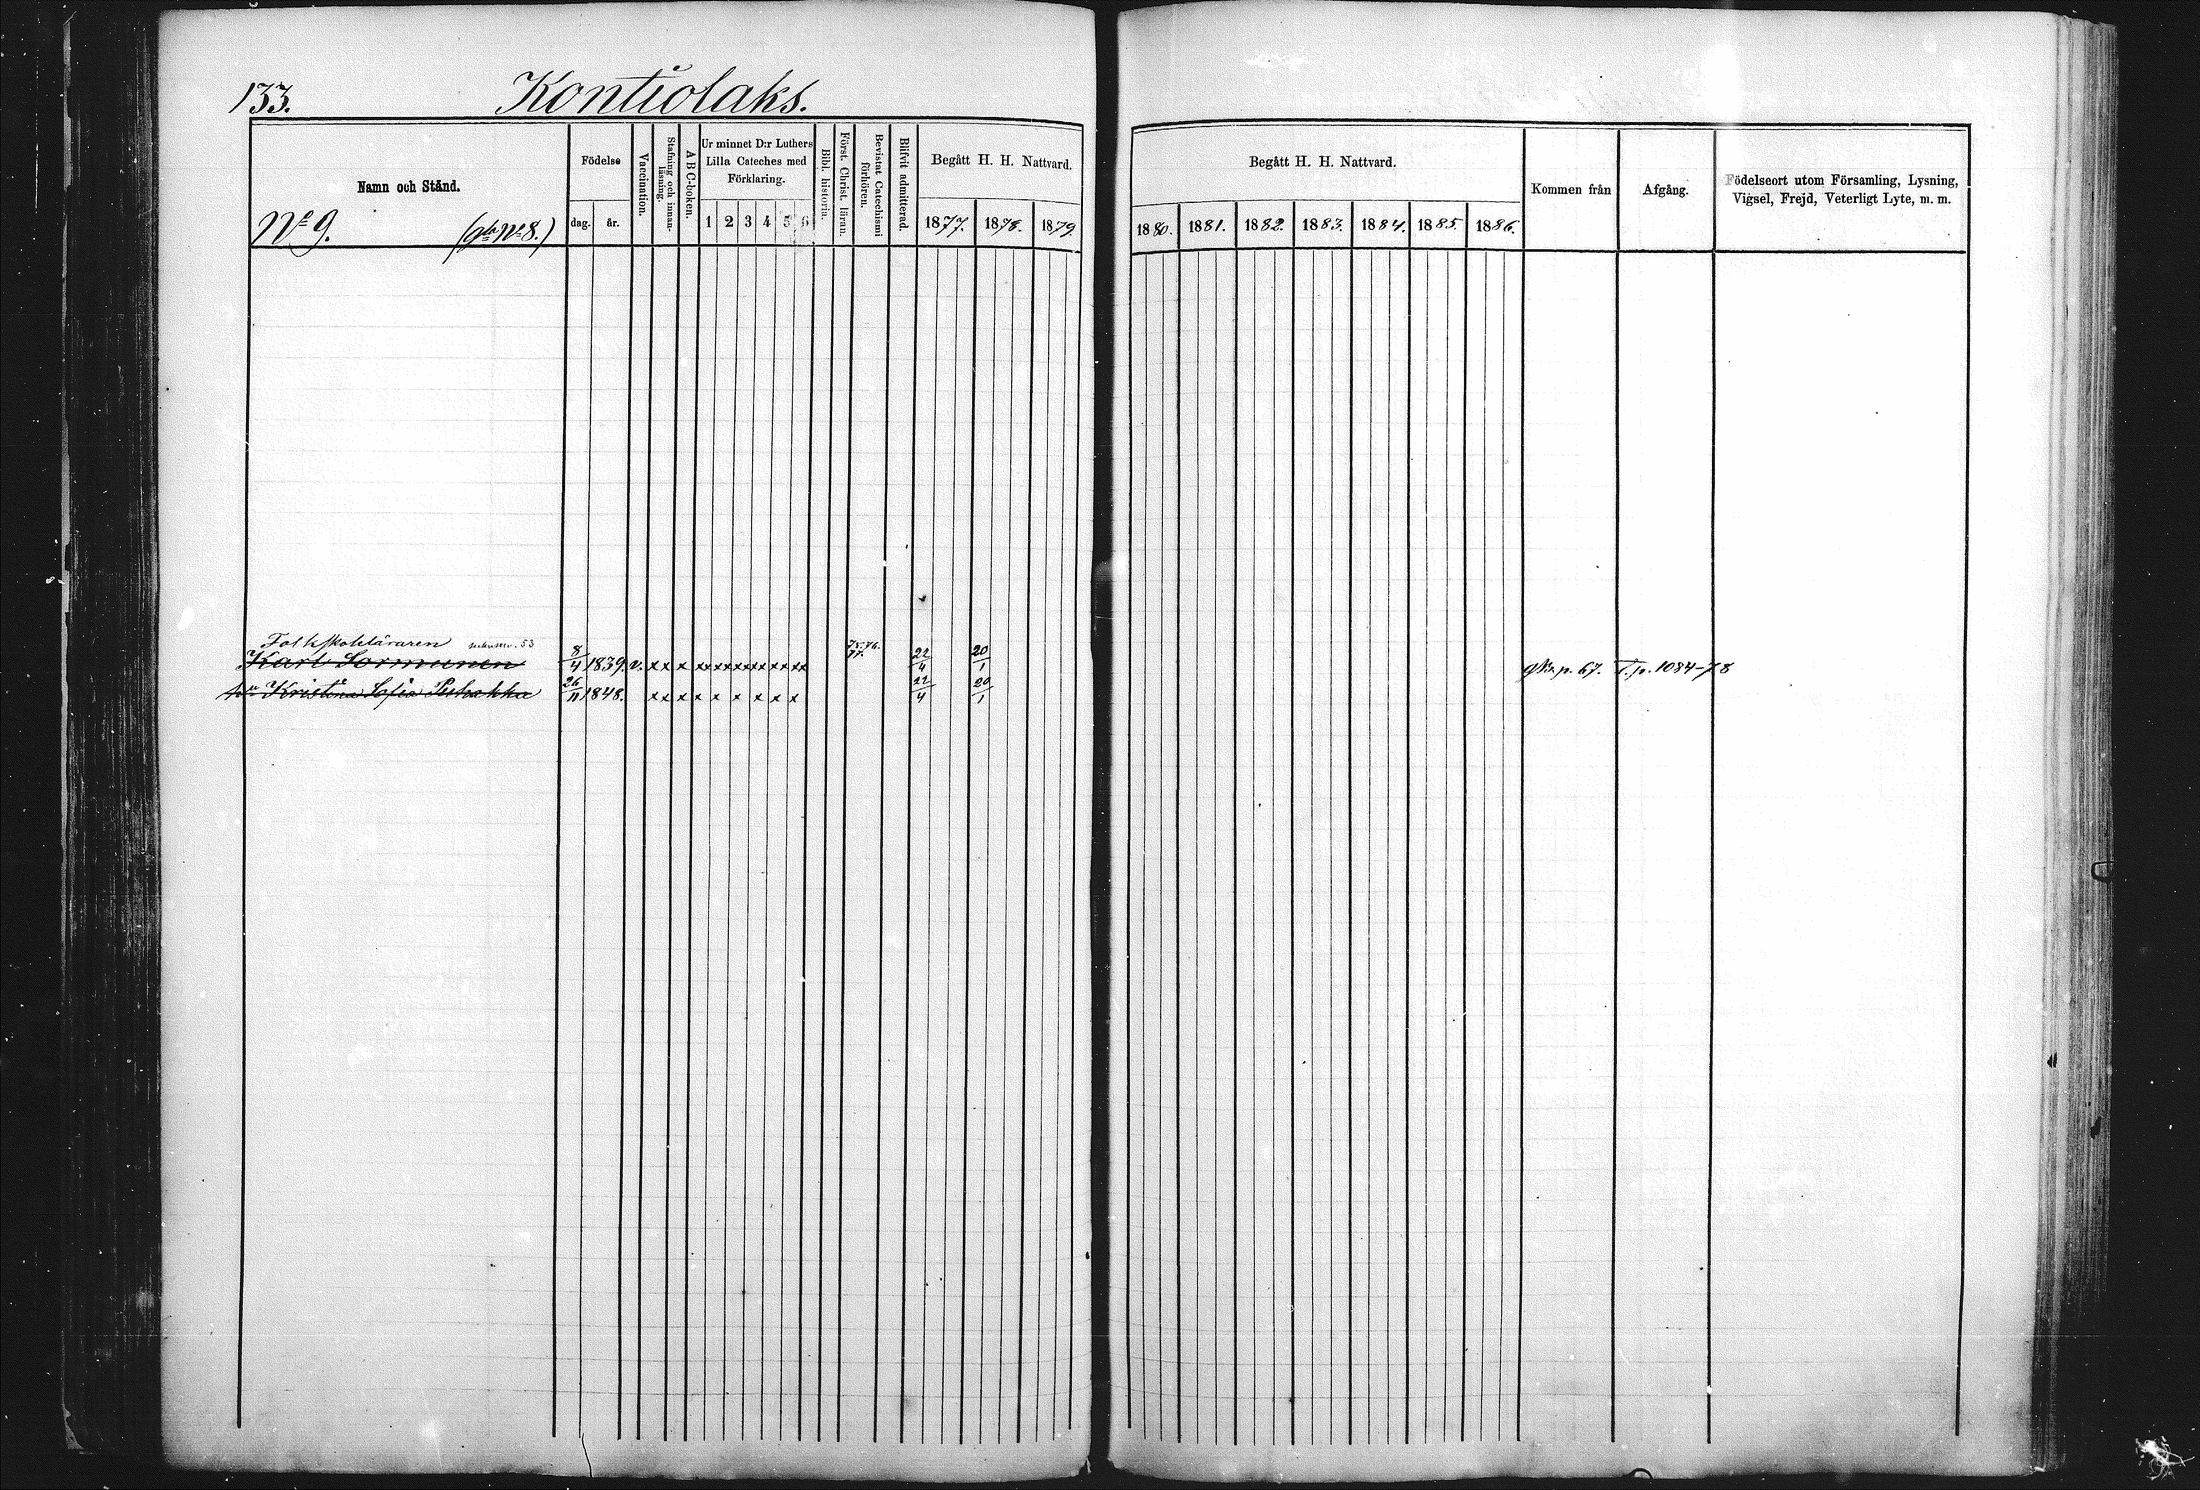 133.
Kontiolaks.
Namn och Stånd.
Nº 9. (gb Nº 8.)
Födelse
dag. år.
Vaccination.
Stafning och innan-läsning.
A B C-boken.
Ur minnet D:r Luthers
Lilla Cateches med
Förklaring.
1 2 3 4 5 6
Bibl. historia.
Först. Christ. läran.
Bevistat Catechismi
förhören.
Blifvit admitterad.
Begått H. H. Nattvard.
1877. 1878. 1879.
Begått H. H. Nattvard.
1880. 1881. 1882. 1883. 1884. 1885. 1886.
Kommen från
Afgång.
Födelseort utom Församling, Lysning,
Vigsel, Frejd, Veterligt Lyte, m. m.
Folkskoleläraren 53
Karl Sormunen 8/4 1839. v. x x x x x x x x x x x x x 75.76. 77. 22/4 20/1 p. 67. 1084-78
Kristina Sofia Puhakka 26/11 1848. x x x x x x x x x 22/4 20/1